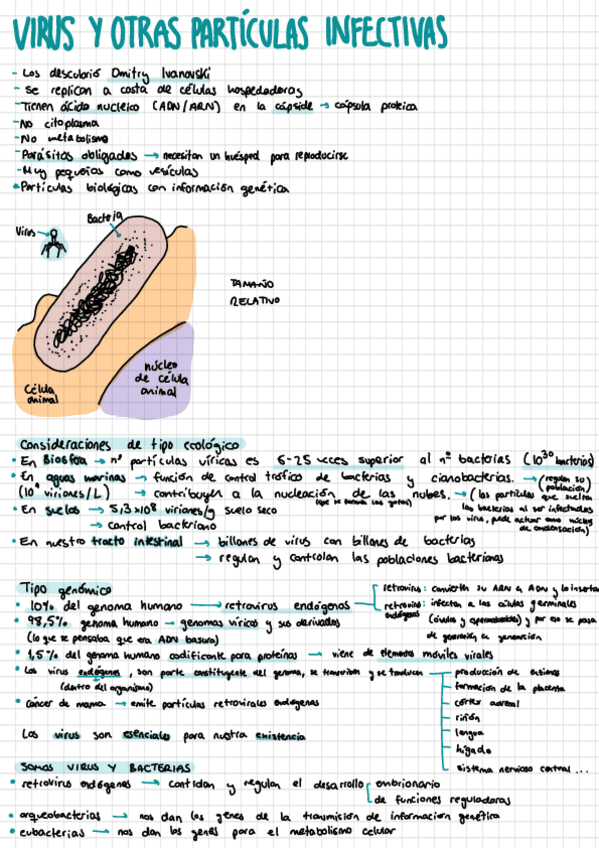 VIRUS Y OTRAS PARTÍCULAS INFECTIVAS
- Los descubrió Dmitry Ivanovski
- Se replican a costa de células hospedadoras
- Tienen ácido nucleico (ADN/ARN) en la cápside → cápsula proteica
- No citoplasma
- No metabolismo
- Parásitos obligados → necesitan un huésped para reproducirse
- Muy pequeños como vesículas
• Partículas biológicas con información genética
Bacteria
Virus
TAMAÑO
RELATIVO
núcleo
de célula
animal
Célula
animal
Consideraciones de tipo ecológico
• En Biosfera → nº partículas víricas es 6-25 veces superior al nº bacterias (10³⁰ bacterias)
• En aguas marinas → función de control trófico de bacterias y cianobacterias. → (regulan su población)
(10 viriones/L) → contribuyen a la nucleación de las nubes. → (las partículas que sueltan
(que se forman las gotas)
las bacterias al ser infectadas
por los virus, puede actuar como núcleo
de condensación)
• En suelos → 5,13x10⁸ viriones/g suelo seco
→ control bacteriano
• En nuestro tracto intestinal → billones de virus con billones de bacterias
→ regulan y controlan las poblaciones bacterianas
Tipo genómico
retrovirus: convierten su ARN a ADN y lo insertan
• 10% del genoma humano → retrovirus endógenos
retrovirus endógenos: infectan a las células germinales
(óvulos y espermatozoides) y por eso se pasa
de generación en generación
• 98,5% genoma humano → genomas víricos y sus derivados
(lo que se pensaba que era ADN basura)
• 1,5% del genoma humano codificante para proteínas → viene de elementos móviles virales
• Los virus endógenos, son parte constituyente del genoma, se transcriben y se traducen
(dentro del organismo)
producción de enzimas
formación de la placenta
córtex adrenal
riñón
lengua
hígado
sistema nervioso central...
• cáncer de mama → emite partículas retrovirales endógenas
Los virus son esenciales para nuestra existencia
SOMOS VIRUS Y BACTERIAS
• retrovirus endógenos → controlan y regulan el desarrollo
embrionario
de funciones reguladoras
• arqueobacterias → nos dan los genes de la transmisión de información genética
• eubacterias → nos dan los genes para el metabolismo celular